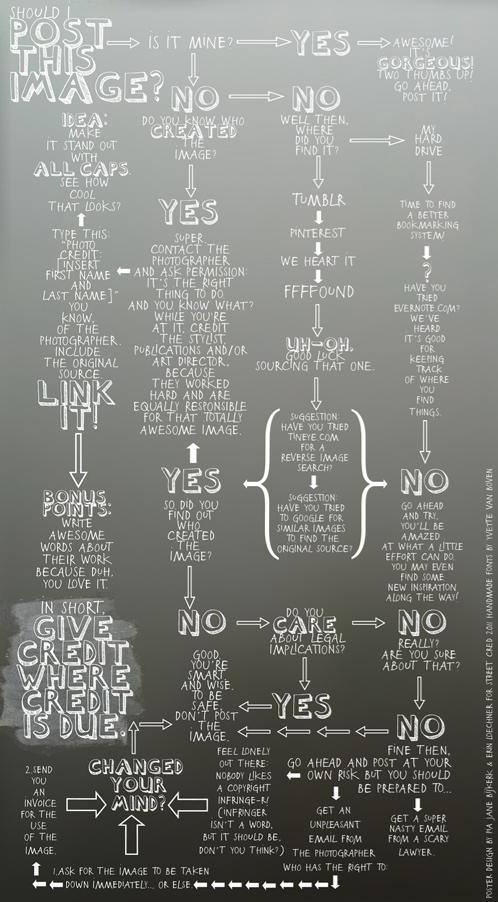 SHOULD I
POST
THIS
IMAGE?
IS IT MINE?
YES
AWESOME!
IT'S
GORGEOUS!
TWO THUMBS UP!
GO AHEAD,
POST IT!
NO
DO YOU KNOW WHO
CREATED
THE
IMAGE?
NO
WELL THEN,
WHERE
DID YOU
FIND IT?
MY
HARD
DRIVE
IDEA:
MAKE
IT STAND OUT
WITH
ALL CAPS.
SEE HOW
COOL
THAT LOOKS?
YES
TUMBLR
PINTEREST
WE HEART IT
FFFFOUND
TIME TO FIND
A BETTER
BOOKMARKING
SYSTEM!
?
HAVE YOU
TRIED
EVERNOTE.COM?
WE'VE
HEARD
IT'S GOOD
FOR
KEEPING
TRACK
OF WHERE
YOU
FIND
THINGS.
TYPE THIS:
"PHOTO
CREDIT:
[INSERT
FIRST NAME
AND
LAST NAME]"
YOU
KNOW,
OF THE
PHOTOGRAPHER.
INCLUDE
THE ORIGINAL
SOURCE.
LINK
IT!
SUPER.
CONTACT THE
PHOTOGRAPHER
AND ASK PERMISSION:
IT'S THE RIGHT
THING TO DO
AND YOU KNOW WHAT?
WHILE YOU'RE
AT IT, CREDIT
THE STYLIST,
PUBLICATIONS AND/OR
ART DIRECTOR,
BECAUSE
THEY WORKED
HARD AND ARE
EQUALLY RESPONSIBLE
FOR THAT TOTALLY
AWESOME IMAGE.
UH-OH.
GOOD LUCK
SOURCING THAT ONE.
SUGGESTION:
HAVE YOU TRIED
TINEYE.COM
FOR A
REVERSE IMAGE
SEARCH?
SUGGESTION:
HAVE YOU TRIED
TO GOOGLE FOR
SIMILAR IMAGES
TO FIND THE
ORIGINAL SOURCE?
YES
SO DID YOU
FIND OUT
WHO
CREATED
THE
IMAGE?
NO
GO AHEAD
AND TRY,
YOU'LL BE
AMAZED
AT WHAT A LITTLE
EFFORT CAN DO.
YOU MAY EVEN
FIND SOME
NEW INSPIRATION
ALONG THE WAY!
BONUS
POINTS:
WRITE
AWESOME
WORDS ABOUT
THEIR WORK
BECAUSE DUH,
YOU LOVE IT.
IN SHORT,
GIVE
CREDIT
WHERE
CREDIT
IS DUE.
NO
DO YOU
CARE
ABOUT LEGAL
IMPLICATIONS?
NO
REALLY?
ARE YOU SURE
ABOUT THAT?
GOOD,
YOU'RE
SMART
AND WISE.
TO BE
SAFE,
DON'T POST
THE
IMAGE.
YES
NO
FINE THEN,
GO AHEAD AND POST AT YOUR
OWN RISK BUT YOU SHOULD
BE PREPARED TO...
FEEL LONELY
OUT THERE:
NOBODY LIKES
A COPYRIGHT
INFRINGE-R!
(INFRINGER
ISN'T A WORD,
BUT IT SHOULD BE,
DON'T YOU THINK?)
GET AN
UNPLEASANT
EMAIL FROM
THE PHOTOGRAPHER
WHO HAS THE RIGHT TO:
GET A SUPER
NASTY EMAIL
FROM A SCARY
LAWYER.
CHANGED
YOUR
MIND?
2. SEND
YOU
AN
INVOICE
FOR THE
USE
OF THE
IMAGE.
1. ASK FOR THE IMAGE TO BE TAKEN
DOWN IMMEDIATELY... OR ELSE.
POSTER DESIGN BY PIA JANE BIJKERK & ERIN LOECHNER FOR STREET CRED 2011 HANDMADE FONTS BY YVETTE VAN BOVEN